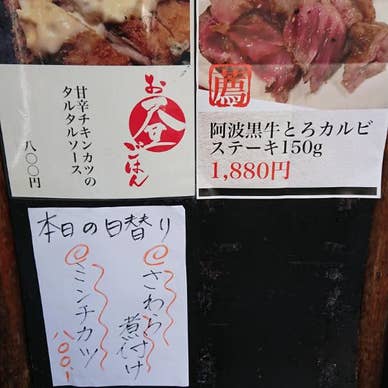 お昼ごはん
甘辛チキンカツの
タルタルソース
八〇〇円
薦
阿波黒牛とろカルビ
ステーキ150g
1,880円
本日の日替り
さわら煮付け
ミンチカツ
八〇〇-